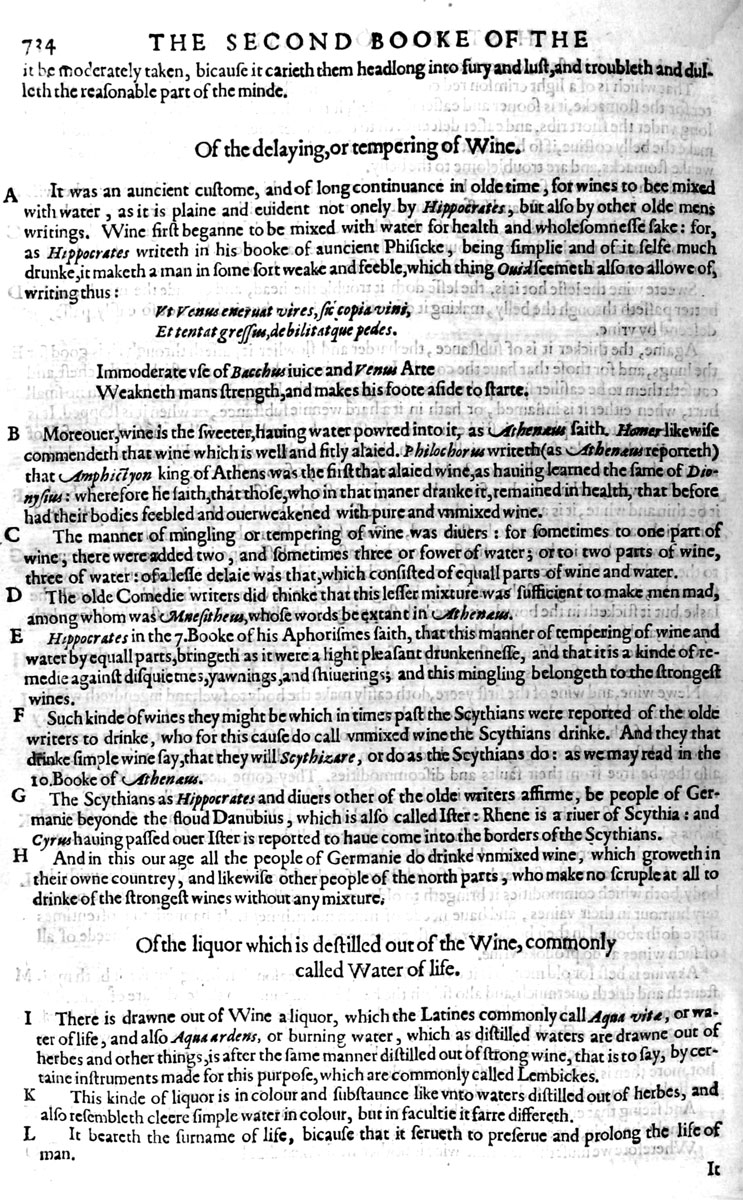 734 THE SECOND BOOKE OF THE
it be moderately taken, bicause it carieth them headlong into fury and lust, and troubleth and dul-
leth the reasonable part of the minde.
Of the delaying, or tempering of Wine.
A It was an auncient custome, and of long continuance in olde time, for wines to bee mixed
with water, as it is plaine and euident not onely by Hippocrates, but also by other olde mens
writings. Wine first beganne to be mixed with water for health and wholesomnesse sake: for,
as Hippocrates writeth in his booke of auncient Phisicke, being simplie and of it selfe much
drunke, it maketh a man in some sort weake and feeble, which thing Ouid seemeth also to allowe of,
writing thus:
Vt Venus eneruat vires, sic copia vini,
Et tentat gressus, debilitatque pedes.
Immoderate vse of Bacchus iuice and Venus Arte
Weakneth mans strength, and makes his foote aside to starte.
B Moreouer, wine is the sweeter, hauing water powred into it, as Athenæus saith. Homer likewise
commendeth that wine which is well and fitly alaied. Philochorus writeth (as Athenæus reporteth)
that Amphictyon king of Athens was the first that alaied wine, as hauing learned the same of Dio-
nysius: wherefore he saith, that those, who in that maner dranke it, remained in health, that before
had their bodies feebled and ouerweakened with pure and vnmixed wine.
C The manner of mingling or tempering of wine was diuers: for sometimes to one part of
wine, there were added two, and sometimes three or fower of water; or to two parts of wine,
three of water: of a lesse delaie was that, which consisted of equall parts of wine and water.
D The olde Comedie writers did thinke that this lesser mixture was sufficient to make men mad,
among whom was Mnesitheus, whose words be extant in Athenæus.
E Hippocrates in the 7. Booke of his Aphorismes saith, that this manner of tempering of wine and
water by equall parts, bringeth as it were a light pleasant drunkennesse, and that it is a kinde of re-
medie against disquietnes, yawnings, and shiuerings; and this mingling belongeth to the strongest
wines.
F Such kinde of wines they might be which in times past the Scythians were reported of the olde
writers to drinke, who for this cause do call vnmixed wine the Scythians drinke. And they that
drinke simple wine say, that they will Scythizare, or do as the Scythians do: as we may read in the
10. Booke of Athenæus.
G The Scythians as Hippocrates and diuers other of the olde writers affirme, be people of Ger-
manie beyonde the floud Danubius, which is also called Ister: Rhene is a riuer of Scythia: and
Cyrus hauing passed ouer Ister is reported to haue come into the borders of the Scythians.
H And in this our age all the people of Germanie do drinke vnmixed wine, which groweth in
their owne countrey, and likewise other people of the north parts, who make no scruple at all to
drinke of the strongest wines without any mixture.
Of the liquor which is destilled out of the Wine, commonly
called Water of life.
I There is drawne out of Wine a liquor, which the Latines commonly call Aqua vitæ, or wa-
ter of life, and also Aqua ardens, or burning water, which as distilled waters are drawne out of
herbes and other things, is after the same manner distilled out of strong wine, that is to say, by cer-
taine instruments made for this purpose, which are commonly called Lembickes.
K This kinde of liquor is in colour and substaunce like vnto waters distilled out of herbes, and
also resembleth cleere simple water in colour, but in facultie it farre differeth.
L It beareth the surname of life, bicause that it serueth to preserue and prolong the life of
man.
It